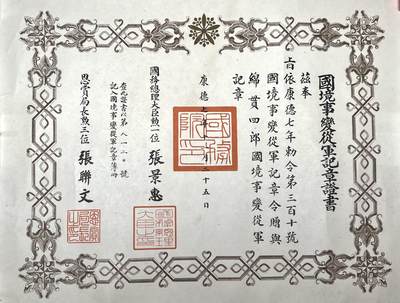 國境事變從軍記章證書
茲奉
上旨依康德七年勅令第三百十號
國境事變從軍記章令贈與
綿貫四郎國境事變從軍
記章
康德七年 月二十五日
國務總理大臣勳一位張景惠
查此證書以第一八〇號
記入國境事變從軍記章簿冊
恩賞局長勳三位張聯文
國務院印